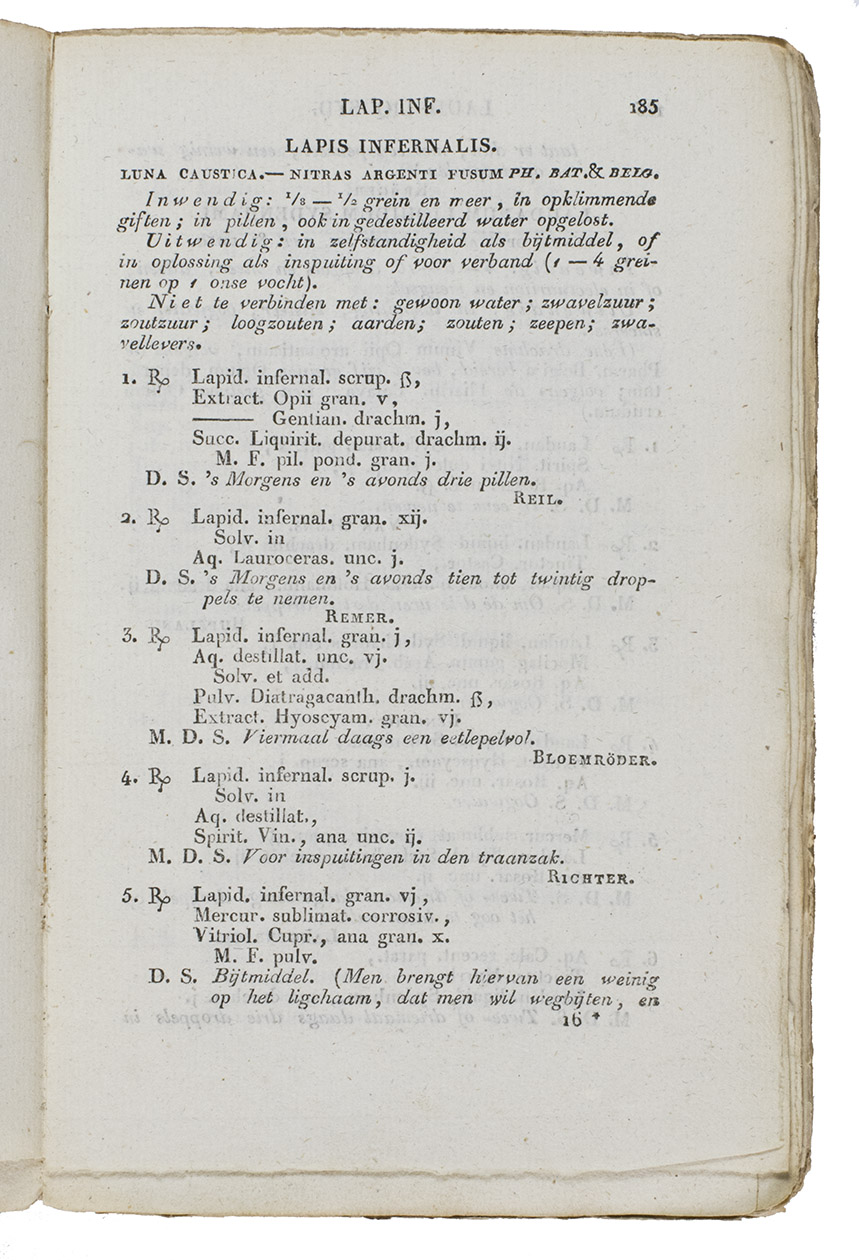 LAP. INF. 185
LAPIS INFERNALIS.
LUNA CAUSTICA.— NITRAS ARGENTI FUSUM PH. BAT. & BELG.
Inwendig: 1/8 — 1/2 grein en meer, in opklimmende
giften; in pillen, ook in gedestilleerd water opgelost.
Uitwendig: in zelfstandigheid als bijtmiddel, of
in oplossing als inspuiting of voor verband (1 — 4 grei-
nen op 1 onse vocht).
Niet te verbinden met: gewoon water; zwavelzuur;
zoutzuur; loogzouten; aarden; zouten; zeepen; zwa-
vellevers.
1. ℞ Lapid. infernal. scrup. ß,
Extract. Opii gran. v,
——— Gentian. drachm. j,
Succ. Liquirit. depurat. drachm. ij.
M. F. pil. pond. gran. j.
D. S. 's Morgens en 's avonds drie pillen.
REIL.
2. ℞ Lapid. infernal. gran. xij.
Solv. in
Aq. Lauroceras. unc. j.
D. S. 's Morgens en 's avonds tien tot twintig drop-
pels te nemen.
REMER.
3. ℞ Lapid. infernal. gran. j,
Aq. destillat. unc. vj.
Solv. et add.
Pulv. Diatragacanth. drachm. ß,
Extract. Hyoscyam. gran. vj.
M. D. S. Viermaal daags een eetlepelvol.
BLOEMRÖDER.
4. ℞ Lapid. infernal. scrup. j.
Solv. in
Aq. destillat.,
Spirit. Vin., ana unc. ij.
M. D. S. Voor inspuitingen in den traanzak.
RICHTER.
5. ℞ Lapid. infernal. gran. vj,
Mercur. sublimat. corrosiv.,
Vitriol. Cupr., ana gran. x.
M. F. pulv.
D. S. Bijtmiddel. (Men brengt hiervan een weinig
op het ligchaam, dat men wil wegbijten, en
16 *